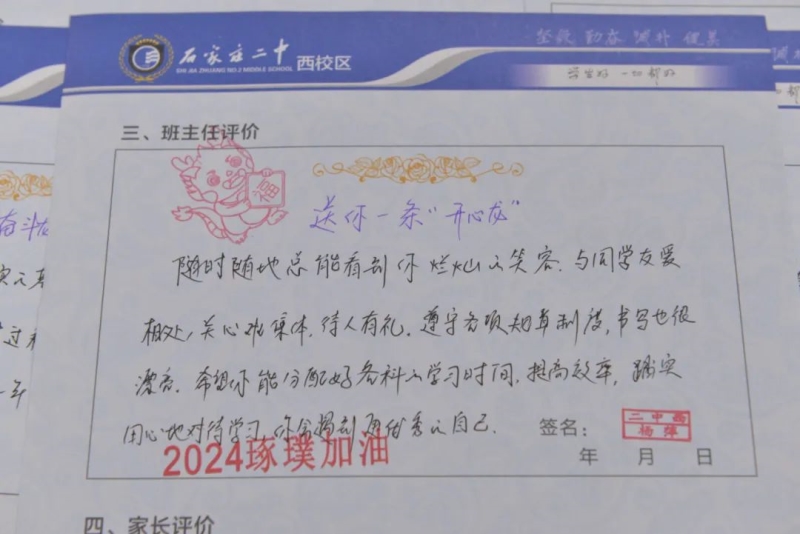 石家庄二中 西校区
SHI JIA ZHUANG NO.2 MIDDLE SCHOOL
坚毅 勤奋 诚朴 健美
学生好 一切都好
三、班主任评价
福
送你一条“开心龙”
随时随地总能看到你灿烂的笑容，与同学友爱
相处，关心班集体，待人有礼，遵守各项规章制度，书写也很
漂亮。希望你能分配好各科的学习时间，提高效率，踏实
用心地对待学习，你会遇到更优秀的自己。
签名：
二中高
杨萍
2024琢璞加油
年 月 日
四、家长评价
奋斗